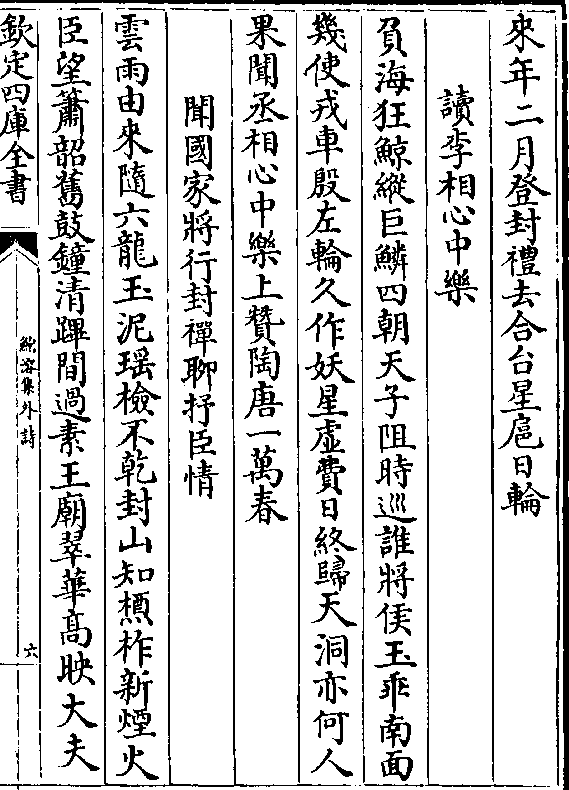 來年二月登封禮去合台星扈日輪
讀李相心中樂
負海狂鯨縱巨鱗四朝天子阻時巡誰將侯玉乖南面
幾使戎車殷左輪久作妖星虛費日終歸天洞亦何人
果聞丞相心中樂上贊陶唐一萬春
聞國家將行封禪聊抒臣情
雲雨由來隨六龍玉泥瑶檢不乾封山知槱柞新煙火
臣望簫韶舊鼓鐘清蹕間過素王廟翠華高映大夫
欽定四庫全書
鮑溶集外詩
六